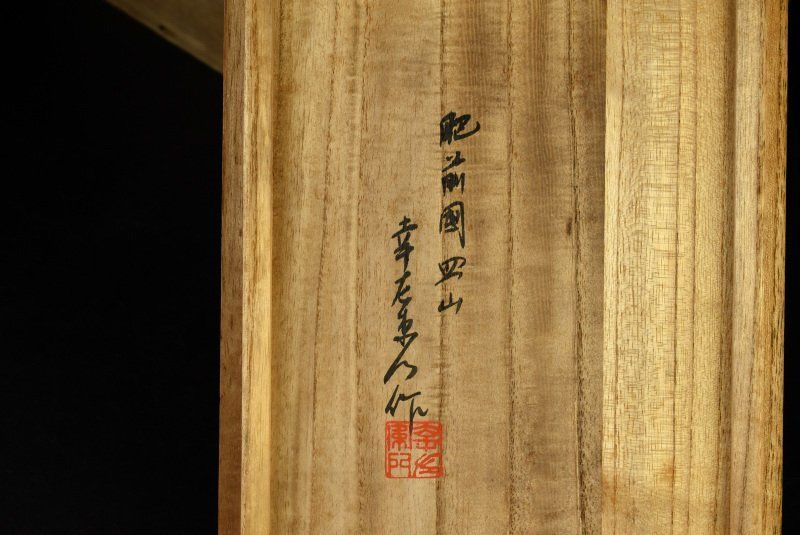 肥前國皿山
幸右衛門作